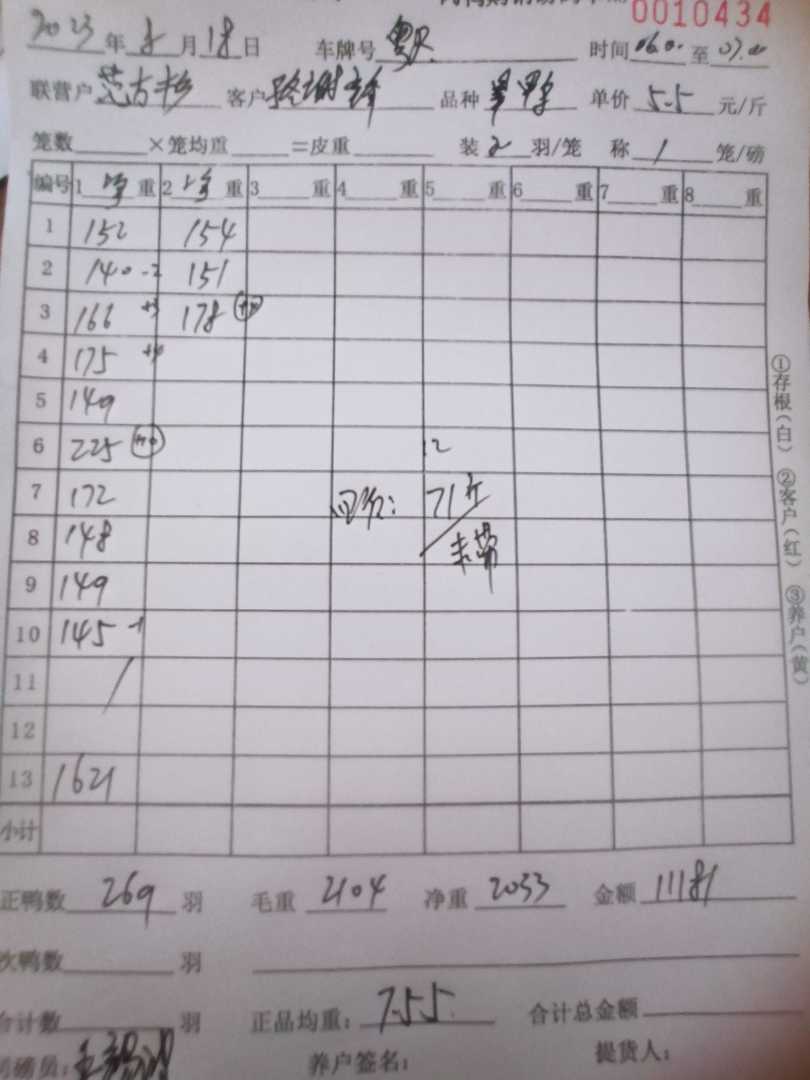 0010434
2023年8月18日 车牌号 时间06.0. 至07.00
联营户 客户 品种 单价5.5元/斤
笼数 ×笼均重 =皮重 装2羽/笼 称1笼/磅
编号 1 重 2 重 3 重 4 重 5 重 6 重 7 重 8 重
1 152 154
2 140 -2 151
3 166 +3 178
4 175
5 149
6 225 12
7 172 71斤
8 148
9 149
10 145 -1
11 /
12
13 1621
小计
①存根(白) ②客户(红) ③养户(黄)
正鸭数269羽 毛重2104 净重2033 金额11181
次鸭数 羽
合计数 羽 正品均重:7.55 合计总金额
司磅员: 养户签名: 提货人: